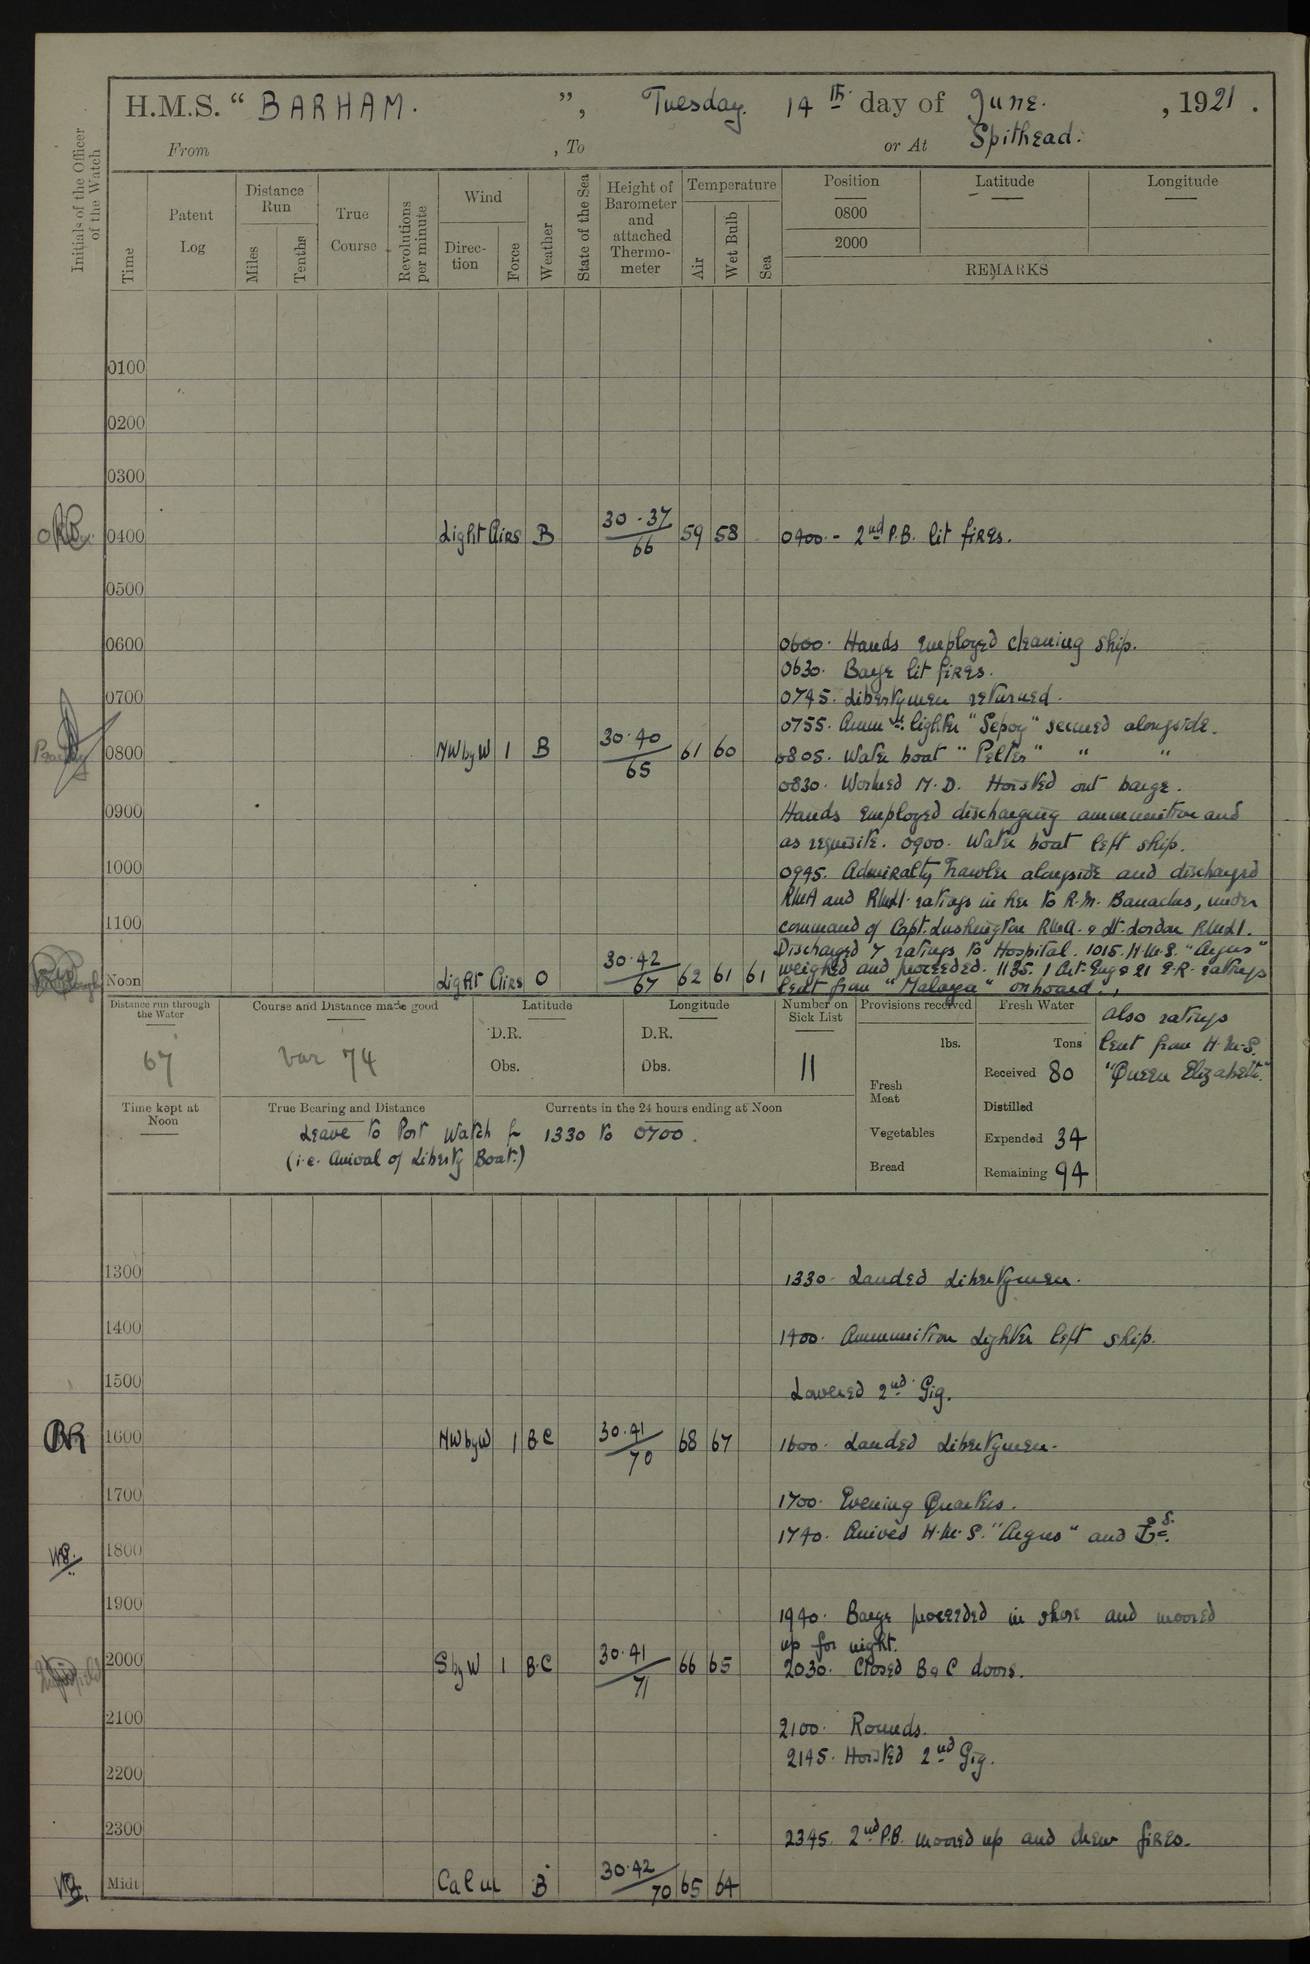 H.M.S. “ BARHAM. ”, Tuesday. 14th day of June. , 1921 .
From , To or At Spithead.
Initials of the Officer of the Watch
Time
Patent Log
Distance Run
Miles
Tenths
True Course
Revolutions per minute
Wind
Direc-tion
Force
Weather
State of the Sea
Height of Barometer and attached Thermo-meter
Temperature
Air
Wet Bulb
Sea
Position
Latitude
Longitude
0800
2000
REMARKS
0100
0200
0300
0400 Light Airs B 30.37/66 59 58 0400 - 2nd P.B. lit fires.
0500
0600 0600. Hands employed cleaning ship.
0630. Barge lit fires.
0700 0745. Libertymen returned.
0755. Ammn. lighter "Sepoy" secured alongside.
0800 NW by W 1 B 30.40/65 61 60 0805. Water boat "Pelter" " "
0830. Worked M.D. Hoisted out barge.
0900 Hands employed discharging ammunition and
as requisite. 0900. Water boat left ship.
1000 0945. Admiralty Trawler alongside and discharged
RMA and RMLI. ratings in her to R.M. Barracks, under
1100 command of Capt. Lushington RMA. & Lt. Jordan RMLI.
Discharged 7 ratings to Hospital. 1015. H.M.S. "Argus"
Noon Light Airs O 30.42/67 62 61 61 weighed and proceeded. 1135. 1 Art. Eng & 21 E.R. ratings
lent from "Malaya" onboard.,
also ratings
lent from H.M.S.
"Queen Elizabeth."
Distance run through the Water
67
Course and Distance made good
var 74
Latitude
D.R.
Obs.
Longitude
D.R.
Obs.
Number on Sick List
11
Provisions received
lbs.
Fresh Meat
Vegetables
Bread
Fresh Water
Tons
Received 80
Distilled
Expended 34
Remaining 94
Time kept at Noon
True Bearing and Distance
Currents in the 24 hours ending at Noon
Leave to Port Watch fr 1330 to 0700.
(i.e. Arrival of Liberty Boat.)
1300 1330. Landed Libertymen.
1400 1400. Ammunition Lighter left ship.
1500 Lowered 2nd Gig.
BR 1600 NW by W 1 BC 30.41/70 68 67 1600. Landed Libertymen.
1700 1700. Evening Quarters.
1740. Arrived H.M.S. "Argus" and ⚓ed.
1800
1900 1940. Barge proceeded in shore and moored
up for night.
2000 S by W 1 B.C 30.41/71 66 65 2030. Closed B & C doors.
2100 2100. Rounds.
2145. Hoisted 2nd Gig.
2200
2300 2345. 2nd P.B. moored up and drew fires.
Midt Calm B 30.42/70 65 64